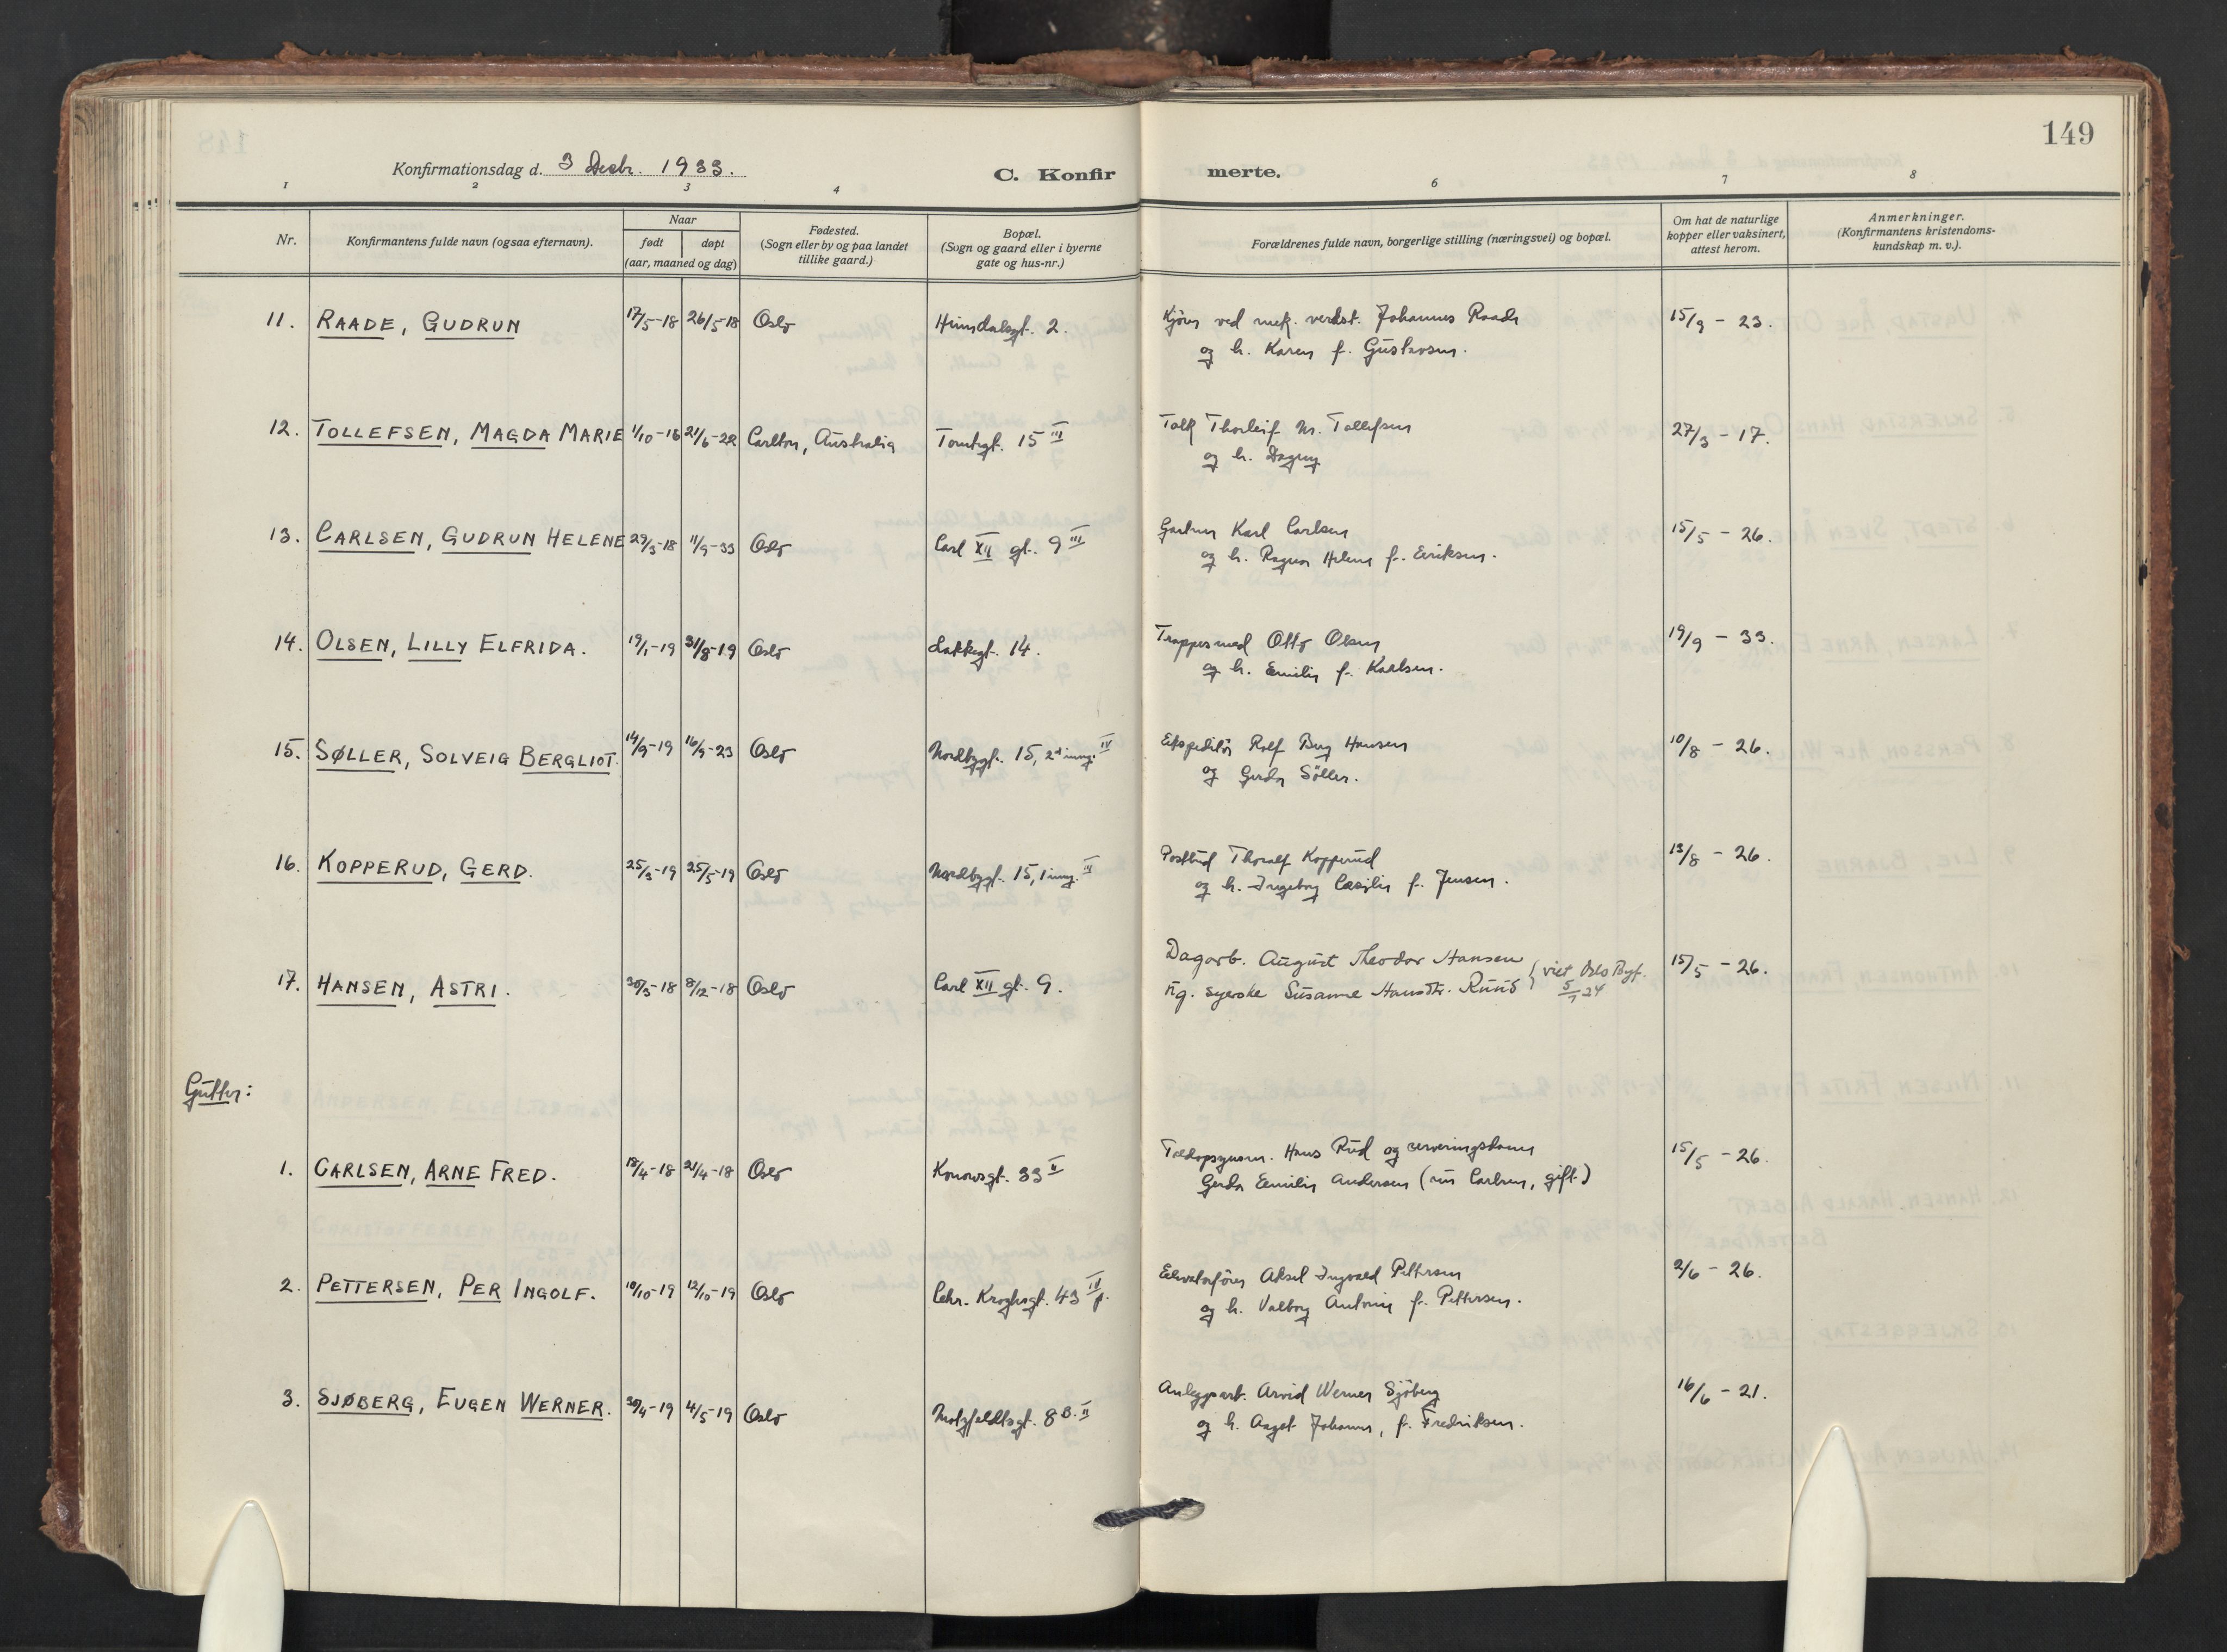 149
Konfirmationsdag d. 3 Desbr. 1933.
C. Konfirmerte.
1 2 3 4 6 7 8
Nr.
Konfirmantens fulde navn (ogsaa efternavn).
Naar
født døpt
(aar, maaned og dag)
Fødested.
(Sogn eller by og paa landet
tillike gaard.)
Bopæl.
(Sogn og gaard eller i byerne
gate og hus-nr.)
Forældrenes fulde navn, borgerlige stilling (næringsvei) og bopæl.
Om hat de naturlige
kopper eller vaksinert,
attest herom.
Anmerkninger.
(Konfirmantens kristendoms-
kundskap m. v.).
11. RAADE, GUDRUN 17/5-18 26/5-18 Oslo Heimdalsgt. 2. Kjører ved mek. verkst. Johannes Raade 15/9 - 23.
og h. Karen f. Gustavsen.
12. TOLLEFSEN, MAGDA MARIE 1/10-16 21/6-22 Carlton, Australia Tomtegt. 15 III Tolk Thorleif M. Tollefsen 27/3 - 17.
og h. Dagny
13. CARLSEN, GUDRUN HELENE 29/3-18 11/9-33 Oslo Carl XII gt. 9 III Gartner Karl Carlsen 15/5 - 26.
og h. Ragna Helene f. Eriksen.
14. OLSEN, LILLY ELFRIDA. 19/1-19 31/8-19 Oslo Lakkegt. 14. Otto Olsen 19/9 - 33.
og h. Emilie f. Karlsen.
15. SØLLER, SOLVEIG BERGLIOT. 14/9-19 16/9-23 Oslo Nordbygt. 15, 2 inng. IV Ekspeditør Rolf Hansen 10/8 - 26.
og Gerda Søller.
16. KOPPERUD, GERD. 25/3-19 25/5-19 Oslo Nordbygt. 15, 1 inng. III Postbud Thoralf Kopperud 13/8 - 26.
og h. Ingeborg Cæsilie f. Jensen.
17. HANSEN, ASTRI. 30/3-18 8/12-18 Oslo Carl XII gt. 9. Dagarb. August Theodor Hansen } viet Oslo Byf. 15/5 - 26.
syerske Susanne Hansdtr. Ruud } 5/7 24
Gutter:
1. CARLSEN, ARNE FRED. 18/4-18 21/4-18 Oslo Konowsgt. 33 II Toldopsynsm. Hans Rud og serveringsdame 15/5 - 26.
Gerda Emilie Andersen (nu Carlsen, gift.)
2. PETTERSEN, PER INGOLF. 10/10-19 12/10-19 Oslo Chr. Kroghsgt. 43 IV Elevatorfører Aksel Ingvald Pettersen 2/6 - 26.
og h. Valborg Antonie f. Pettersen.
3. SJØBERG, EUGEN WERNER. 30/4-19 4/5-19 Oslo Motzfeldtsgt. 8 B. II Anleggsarb. Arvid Werner Sjöberg 16/6 - 21.
og h. Aagot Johanne, f. Fredriksen.